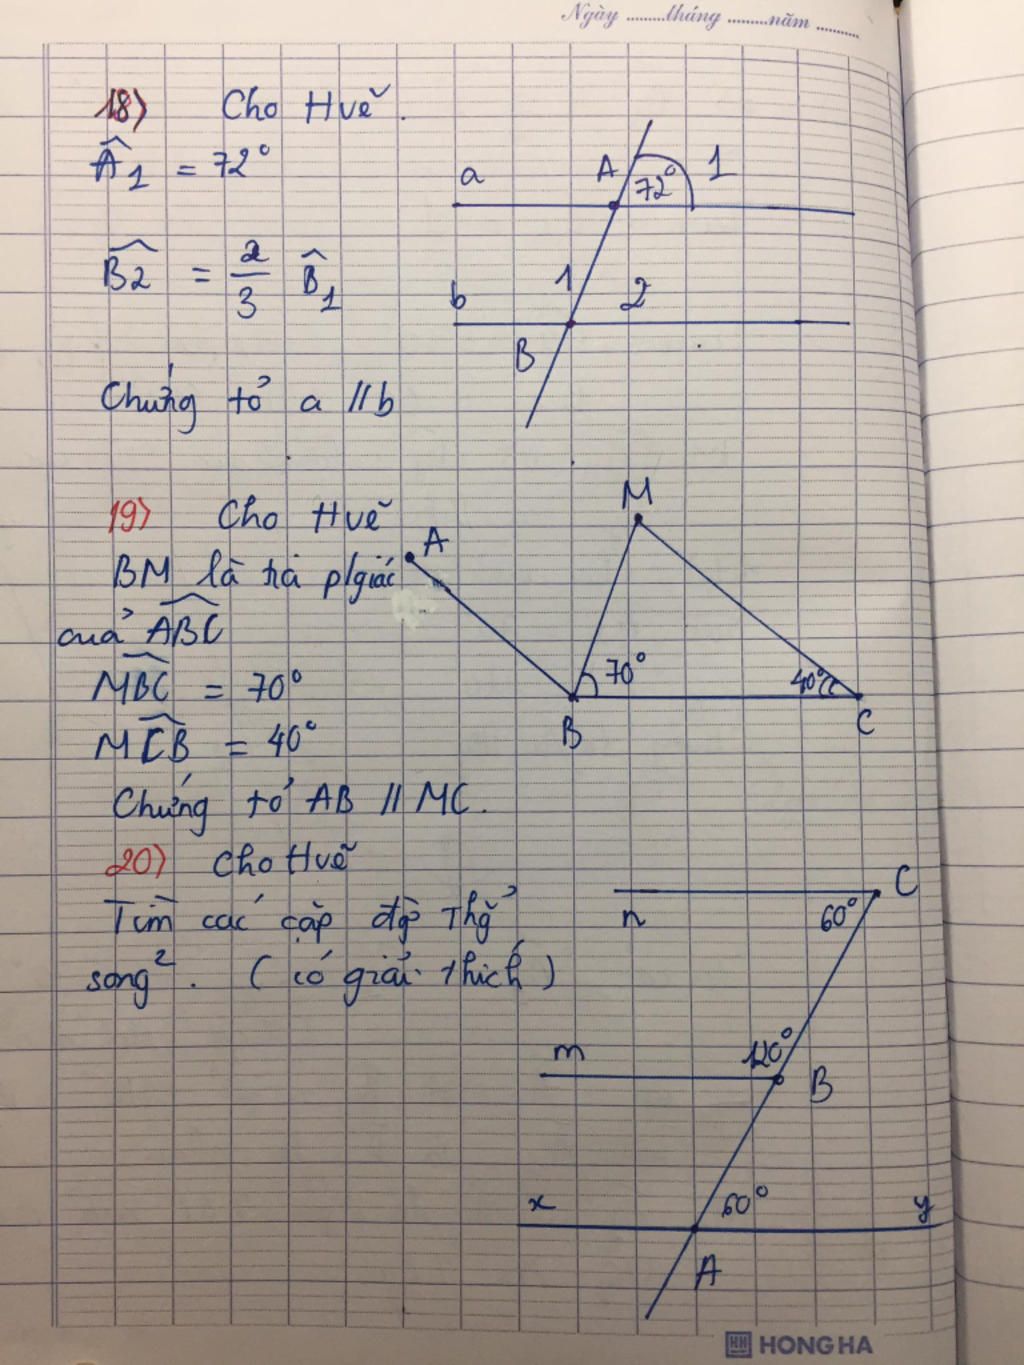 Ngày .........tháng .........năm .........
18) Cho Hvẽ.
Â1 = 72°
B̂2 = 2/3 B̂1
Chứng tỏ a // b
a A 72° 1
b 1 2
B
19) Cho Hvẽ
BM là tia p/giác
của ABC
MBC = 70°
MCB = 40°
Chứng tỏ AB // MC.
A M
70° 40°
B C
20) Cho Hvẽ
Tìm các cặp đg Thg̉
song². (có giải thích)
n 60° C
m 120° B
x 60° y
A
HH HONG HA